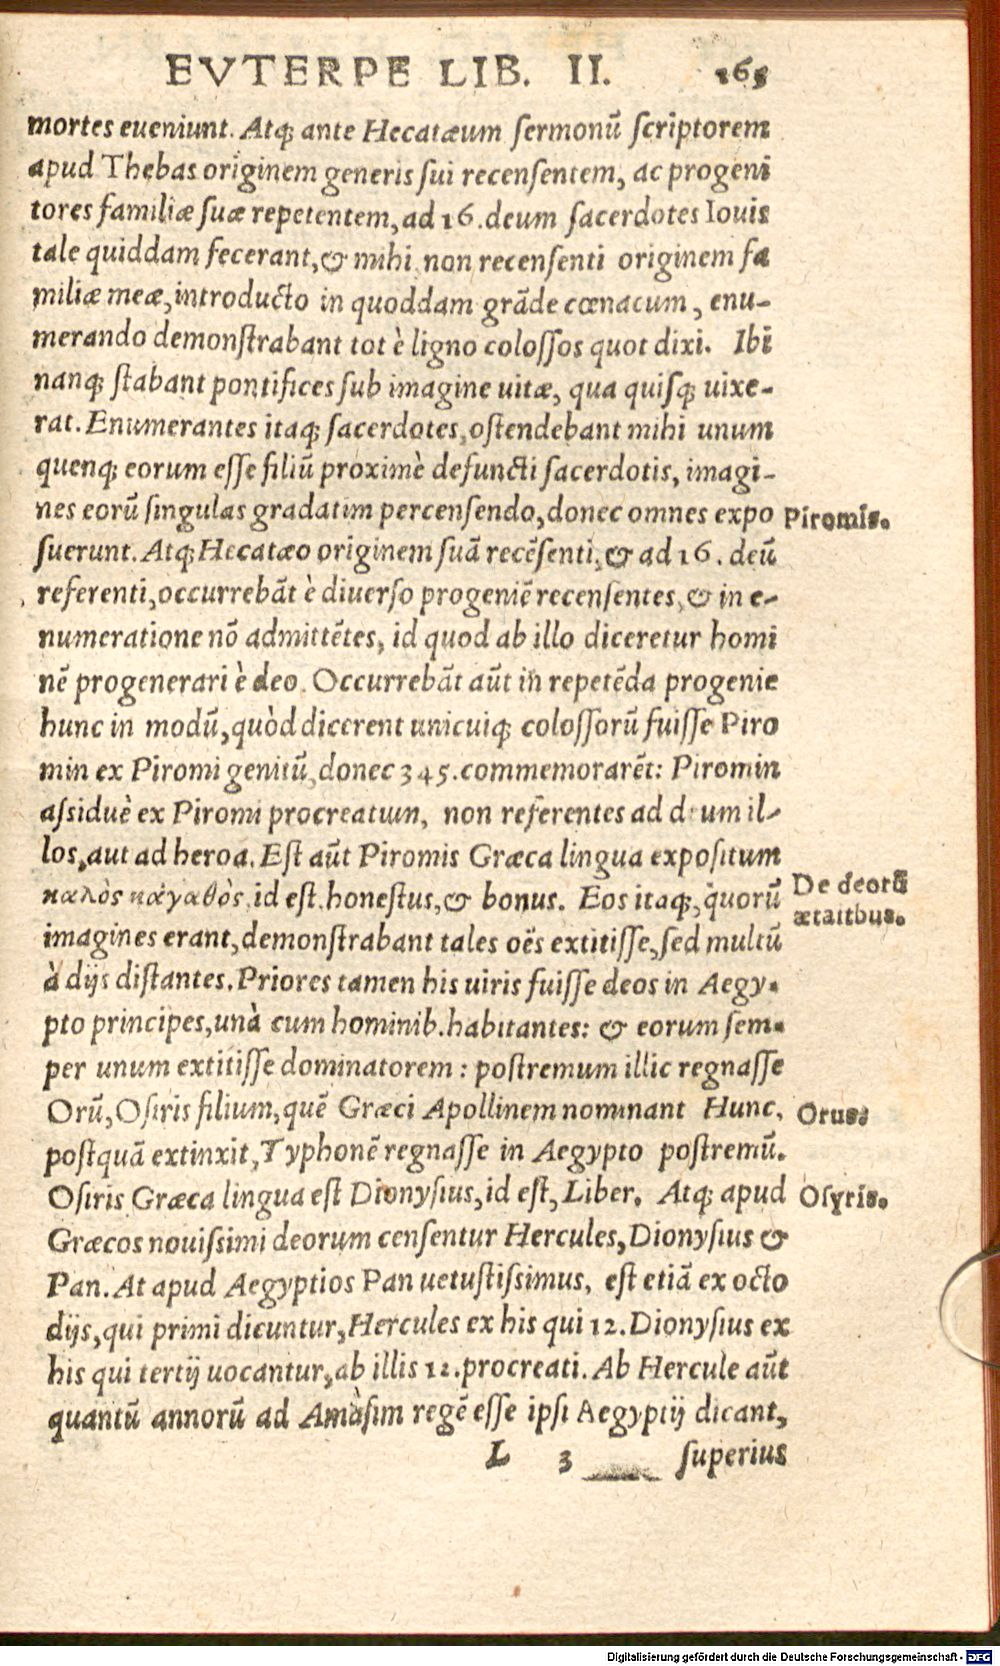 EVTERPE LIB. II. 165
mortes eueniunt. Atq́; ante Hecatæum sermonū scriptorem
apud Thebas originem generis sui recensentem, ac progeni
tores familiæ suæ repetentem, ad 16. deum sacerdotes Iouis
tale quiddam fecerant, & mihi non recensenti originem fa
miliæ meæ, introducto in quoddam grāde cœnacum, enu-
merando demonstrabant tot è ligno colossos quot dixi. Ibi
nanq; stabant pontifices sub imagine uitæ, qua quisq; uixe-
rat. Enumerantes itaq; sacerdotes, ostendebant mihi unum
quenq; eorum esse filiū proximè defuncti sacerdotis, imagi-
nes eorū singulas gradatim percensendo, donec omnes expo
Piromis.
suerunt. Atq; Hecatæo originem suā recēsenti, & ad 16. deū
referenti, occurrebāt è diuerso progeniē recensentes, & in e-
numeratione nō admittētes, id quod ab illo diceretur homi
nē progenerari è deo. Occurrebāt aūt in repetēda progenie
hunc in modū, quòd dicerent unicuiq; colossorū fuisse Piro
min ex Piromi genitū, donec 345. commemorarēt: Piromin
assiduè ex Piromi procreatum, non referentes ad deum il-
los, aut ad heroa. Est aūt Piromis Græca lingua expositum
καλὸς κἀγαθὸς, id est, honestus, & bonus. Eos itaq;, quorū
De deorū
ætatibus.
imagines erant, demonstrabant tales oēs extitisse, sed multū
à dijs distantes. Priores tamen his uiris fuisse deos in Aegy-
pto principes, unà cum hominib. habitantes: & eorum sem-
per unum extitisse dominatorem: postremum illic regnasse
Orū, Osiris filium, quē Græci Apollinem nominant Hunc,
Orus.
postquā extinxit, Typhonē regnasse in Aegypto postremū.
Osiris Græca lingua est Dionysius, id est, Liber. Atq; apud
Osyris.
Græcos nouissimi deorum censentur Hercules, Dionysius &
Pan. At apud Aegyptios Pan uetustissimus, est etiā ex octo
dijs, qui primi dicuntur, Hercules ex his qui 12. Dionysius ex
his qui tertij uocantur, ab illis 12. procreati. Ab Hercule aūt
quantū annorū ad Amàsim regē esse ipsi Aegyptij dicant,
L 3 superius
Digitalisierung gefördert durch die Deutsche Forschungsgemeinschaft - DFG